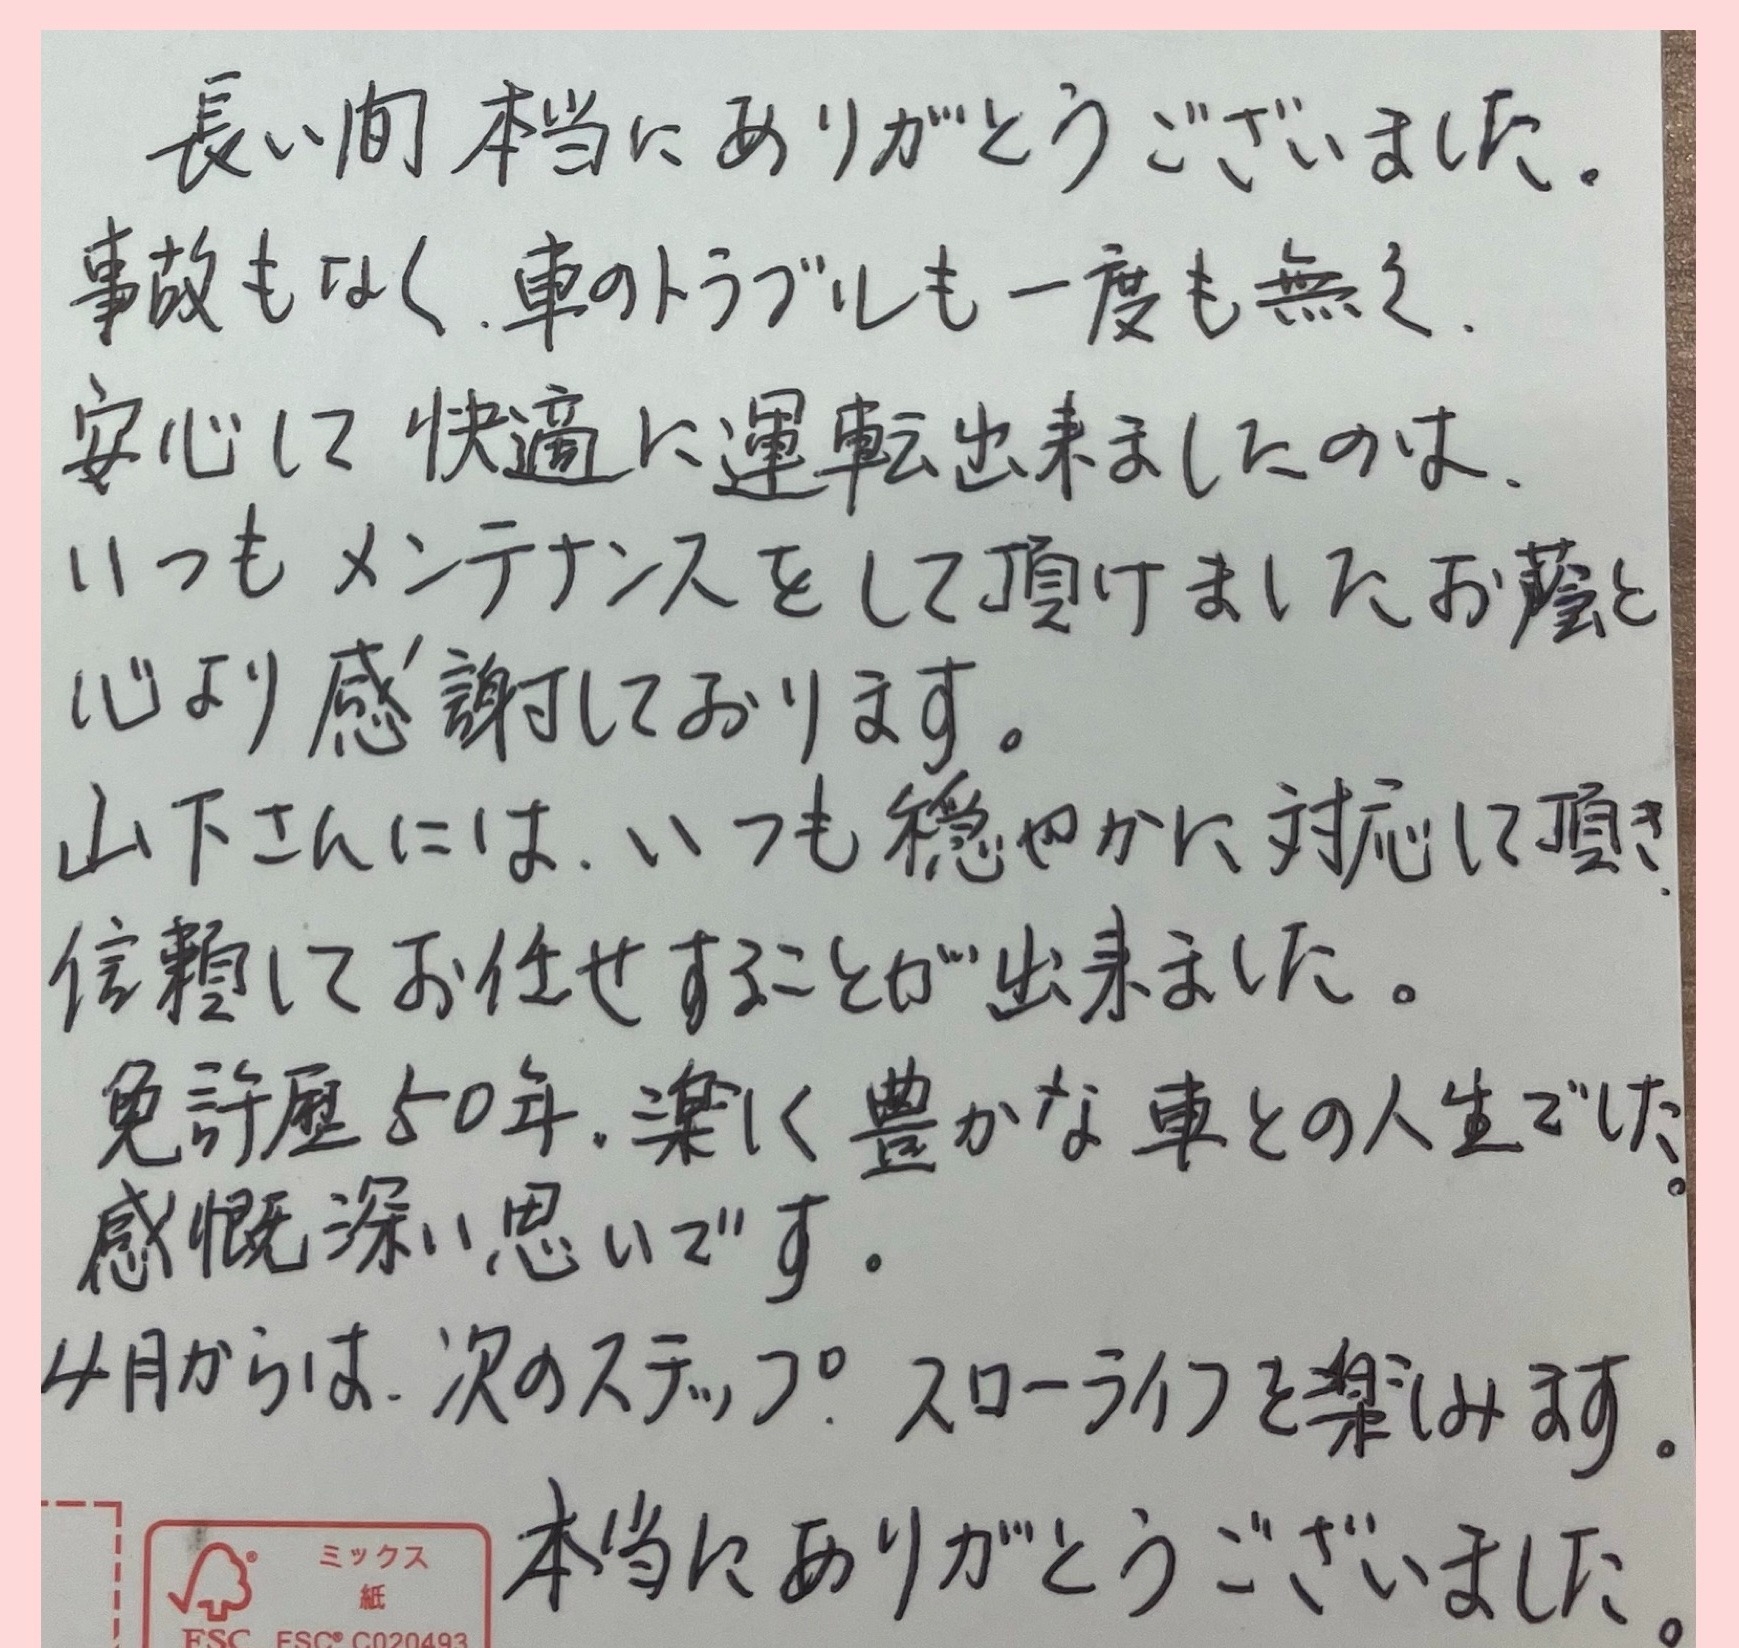 長い間 本当にありがとうございました。
事故もなく、車のトラブルも一度も無く、
安心して 快適に運転出来ましたのは、
いつも メンテナンスをして頂けましたお蔭と
心より感謝しております。
山下さんには、いつも穏やかに対応して頂き、
信頼してお任せすることが出来ました。
免許歴50年、楽しく豊かな車との人生でした。
感慨深い思いです。
4月からは、次のステップ、スローライフを楽しみます。
本当にありがとうございました。
ミックス
紙
FSC FSC® C020493